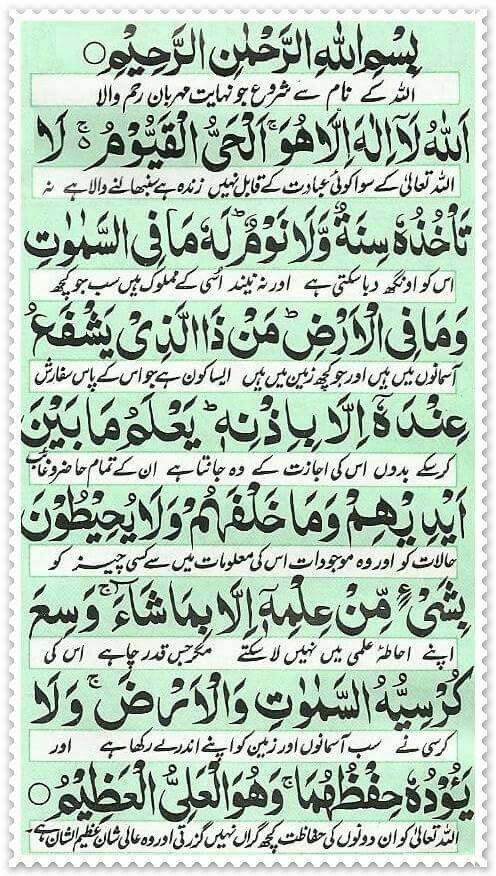 بِسْمِ اللهِ الرَّحْمٰنِ الرَّحِيْمِ ○
اللہ کے نام سے شروع جو نہایت مہربان رحم والا
اَللّٰهُ لَآ اِلٰهَ اِلَّا هُوَ ۚ اَلْحَيُّ الْقَيُّوْمُ ۚ لَا
اللہ تعالیٰ کے سوا کوئی عبادت کے قابل نہیں زندہ ہے سنبھالنے والا ہے نہ
تَاْخُذُهٗ سِنَةٌ وَّلَا نَوْمٌ ؕ لَهٗ مَا فِي السَّمٰوٰتِ
اس کو اونگھ دبا سکتی ہے اور نہ نیند اسی کے مملوک ہیں سب جو کچھ
وَمَا فِي الْاَرْضِ ؕ مَنْ ذَا الَّذِيْ يَشْفَعُ
آسمانوں میں ہیں اور جو کچھ زمین میں ہیں ایسا کون ہے جو اس کے پاس سفارش
عِنْدَهٗٓ اِلَّا بِاِذْنِهٖ ؕ يَعْلَمُ مَا بَيْنَ
کر سکے بدوں اس کی اجازت کے وہ جانتا ہے ان کے تمام حاضر و غائب
اَيْدِيْهِمْ وَمَا خَلْفَهُمْ وَلَا يُحِيْطُوْنَ
حالات کو اور وہ موجودات اس کی معلومات میں سے کسی چیز کو
بِشَيْءٍ مِّنْ عِلْمِهٖٓ اِلَّا بِمَا شَآءَ ۚ وَسِعَ
اپنے احاطۂ علمی میں نہیں لا سکتے مگر جس قدر چاہے اس کی
كُرْسِيُّهُ السَّمٰوٰتِ وَالْاَرْضَ ۚ وَلَا
کرسی نے سب آسمانوں اور زمین کو اپنے اندر لے رکھا ہے اور
يَـُٔوْدُهٗ حِفْظُهُمَا ۚ وَهُوَ الْعَلِيُّ الْعَظِيْمُ ○
اللہ تعالیٰ کو ان دونوں کی حفاظت کچھ گراں نہیں گزرتی اور وہ عالی شان عظیم الشان ہے۔